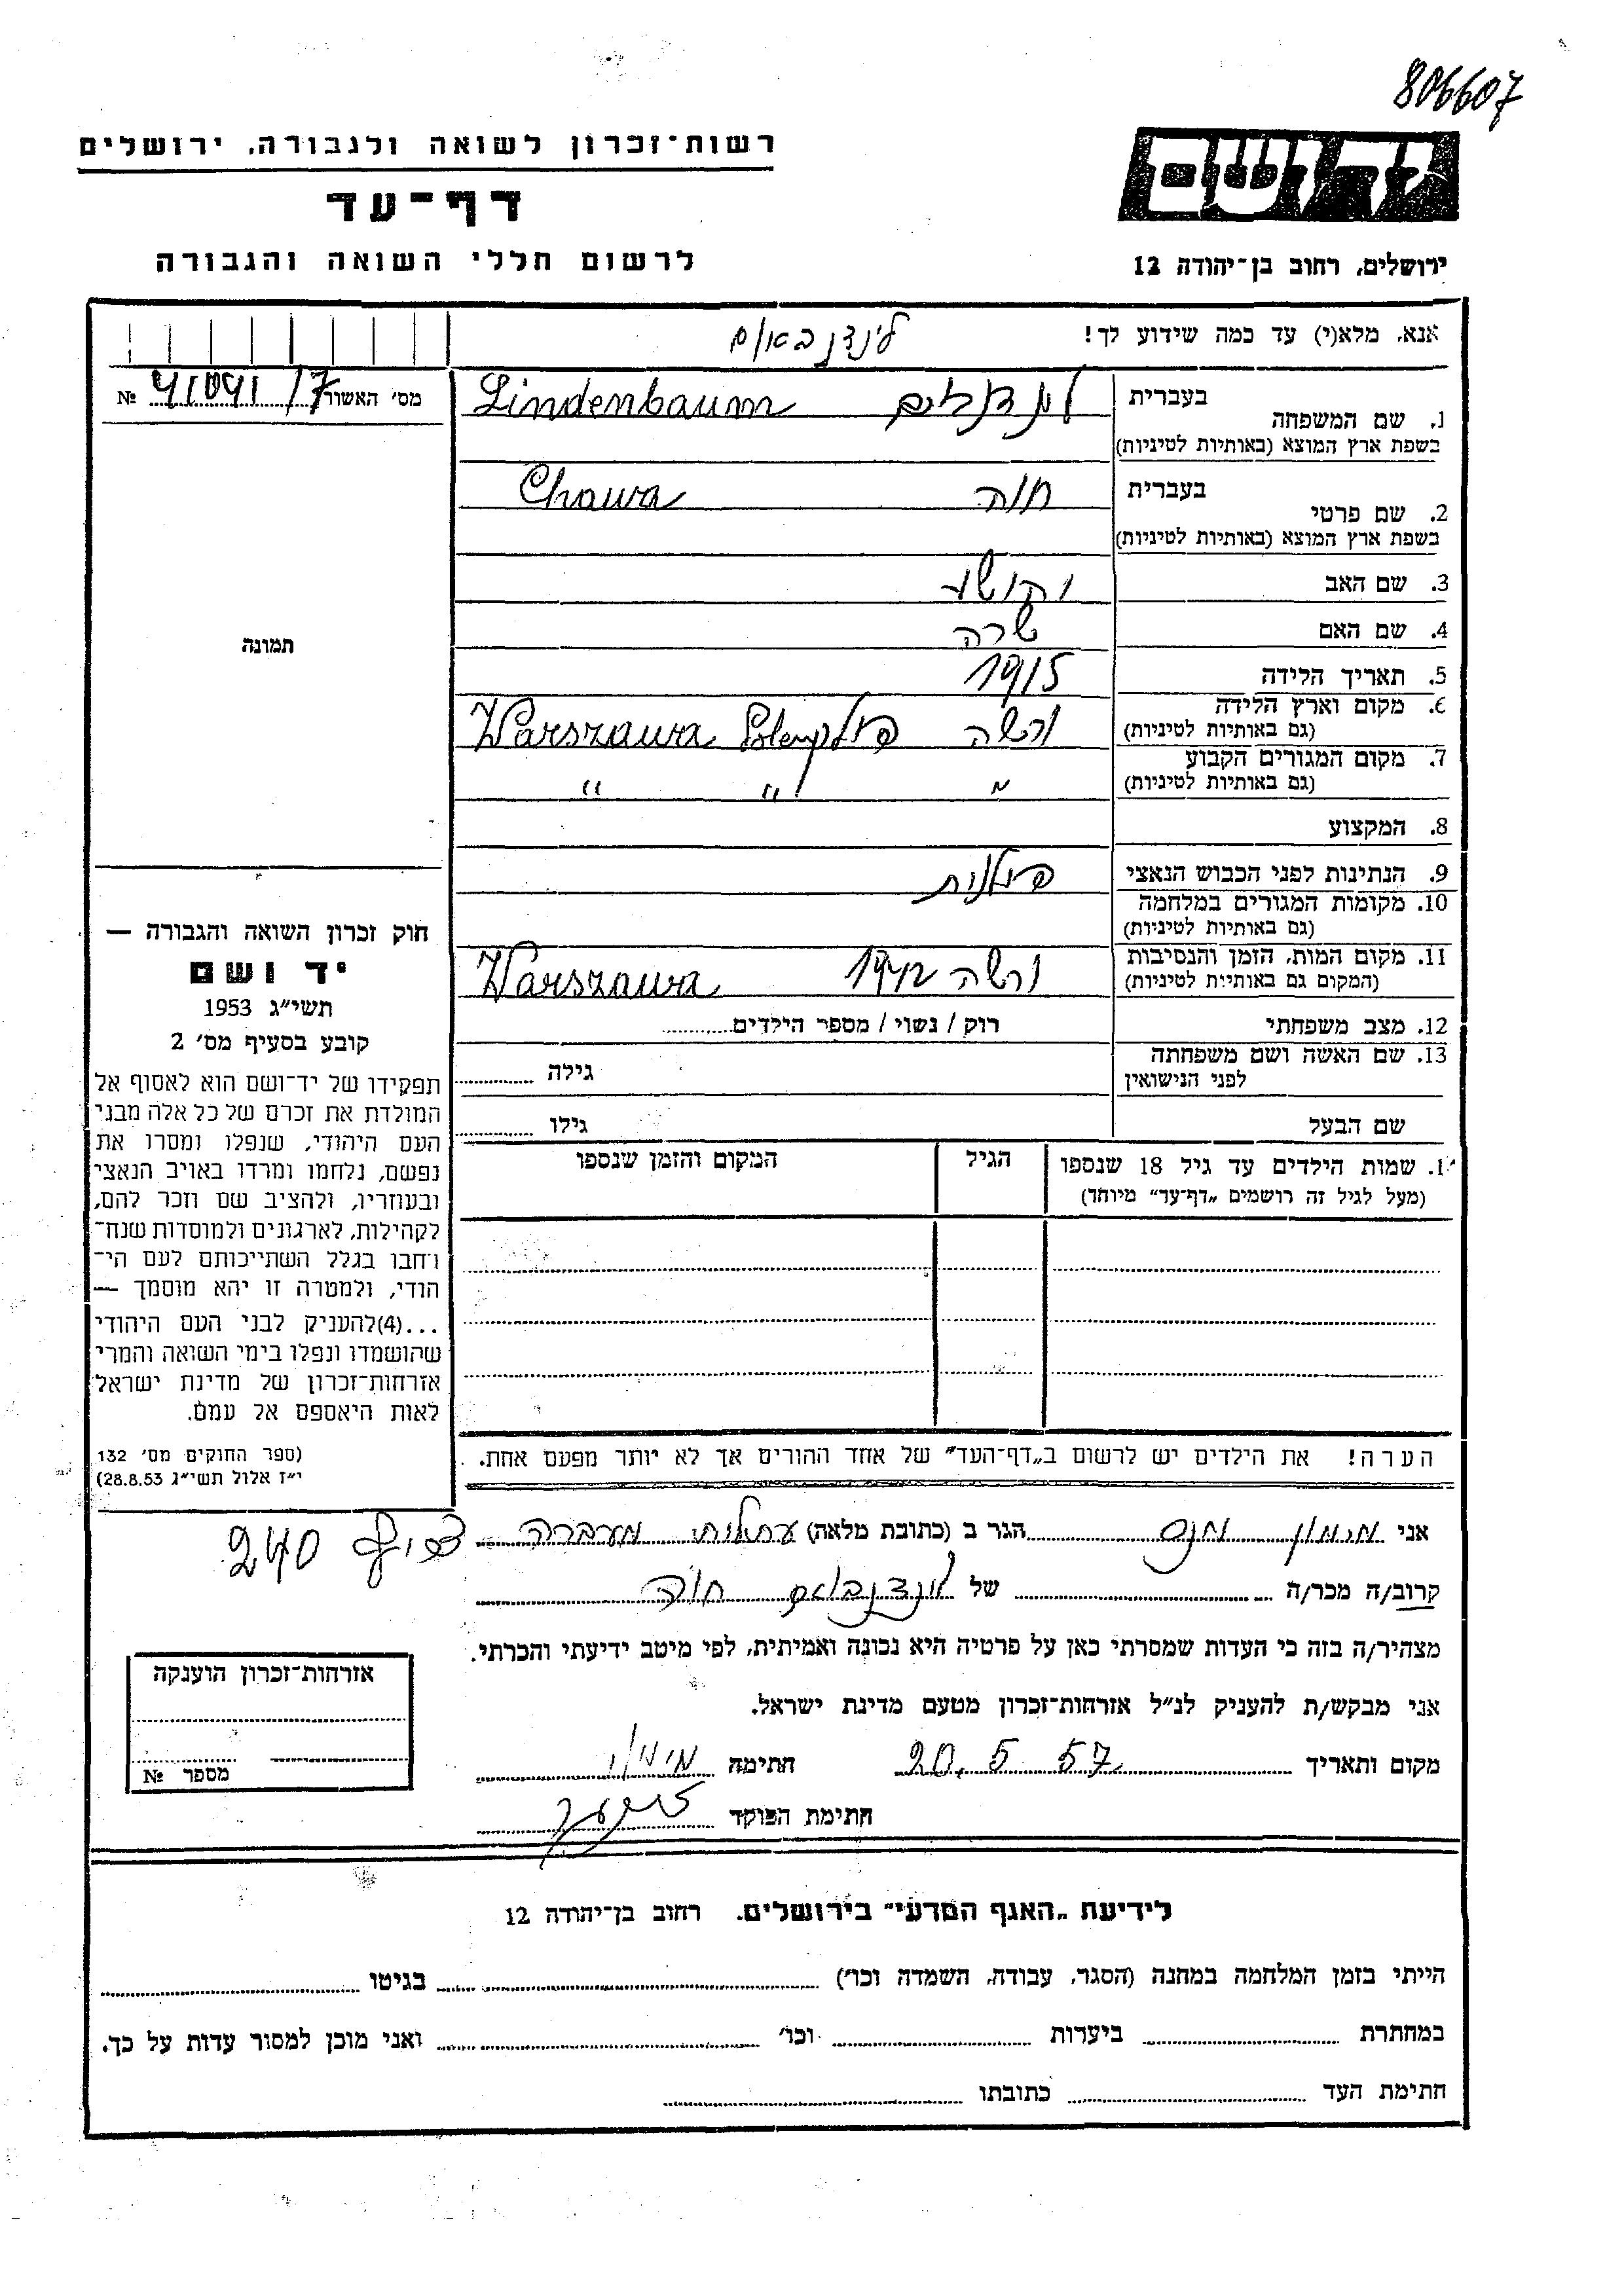 806607
יד ושם
רשות־זכרון לשואה ולגבורה, ירושלים
דף־עד
לרשום חללי השואה והגבורה
ירושלים, רחוב בן־יהודה 12
אנא, מלא(י) עד כמה שידוע לך!
לינדנבאום
מס׳ האשור 41041/7 №
תמונה
1. שם המשפחה
בעברית
Lindenbaum
בשפת ארץ המוצא (באותיות לטיניות)
2. שם פרטי
בעברית חוה Chawa
בשפת ארץ המוצא (באותיות לטיניות)
3. שם האב
4. שם האם שרה
5. תאריך הלידה 1915
6. מקום וארץ הלידה ורשה Warszawa
(גם באותיות לטיניות)
7. מקום המגורים הקבוע " " "
(גם באותיות לטיניות)
8. המקצוע
9. הנתינות לפני הכבוש הנאצי פולנית
10. מקומות המגורים במלחמה
(גם באותיות לטיניות)
11. מקום המות, הזמן והנסיבות ורשה 1942 Warszawa
(המקום גם באותיות לטיניות)
12. מצב משפחתי רוק / נשוי / מספר הילדים
13. שם האשה ושם משפחתה
לפני הנישואין
גילה
שם הבעל גילו
1. שמות הילדים עד גיל 18 שנספו
(מעל לגיל זה רושמים „דף־עד״ מיוחד)
הגיל
המקום והזמן שנספו
הערה! את הילדים יש לרשום ב„דף־העד״ של אחד ההורים אך לא יותר מפעם אחת.
חוק זכרון השואה והגבורה —
יד ושם
תשי״ג 1953
קובע בסעיף מס׳ 2
תפקידו של יד־ושם הוא לאסוף אל
המולדת את זכרם של כל אלה מבני
העם היהודי, שנפלו ומסרו את
נפשם, נלחמו ומרדו באויב הנאצי
ובעוזריו, ולהציב שם וזכר להם,
לקהילות, לארגונים ולמוסדות שנח־
רחבו בגלל השתייכותם לעם הי־
הודי, ולמטרה זו יהא מוסמך —
...(4)להעניק לבני העם היהודי
שהושמדו ונפלו בימי השואה והמרי
אזרחות־זכרון של מדינת ישראל
לאות היאספם אל עמם.
(ספר החוקים מס׳ 132
י״ז אלול תשי״ג 28.8.53)
אני מימון הגר ב (כתובת מלאה) עתלית מעברה צריף 240
קרוב/ה מכר/ה של לינדנבאום חוה
מצהיר/ה בזה כי העדות שמסרתי כאן על פרטיה היא נכונה ואמיתית, לפי מיטב ידיעתי והכרתי.
אני מבקש/ת להעניק לנ״ל אזרחות־זכרון מטעם מדינת ישראל.
מקום ותאריך 20.5.57 חתימה מימון
חתימת הפוקד
אזרחות־זכרון הוענקה
מספר №
לידיעת „האגף המדעי״ בירושלים, רחוב בן־יהודה 12
הייתי בזמן המלחמה במחנה (הסגר, עבודה, השמדה וכו׳) בגיטו
במחתרת ביערות וכו׳ ואני מוכן למסור עדות על כך.
חתימת העד כתובתו